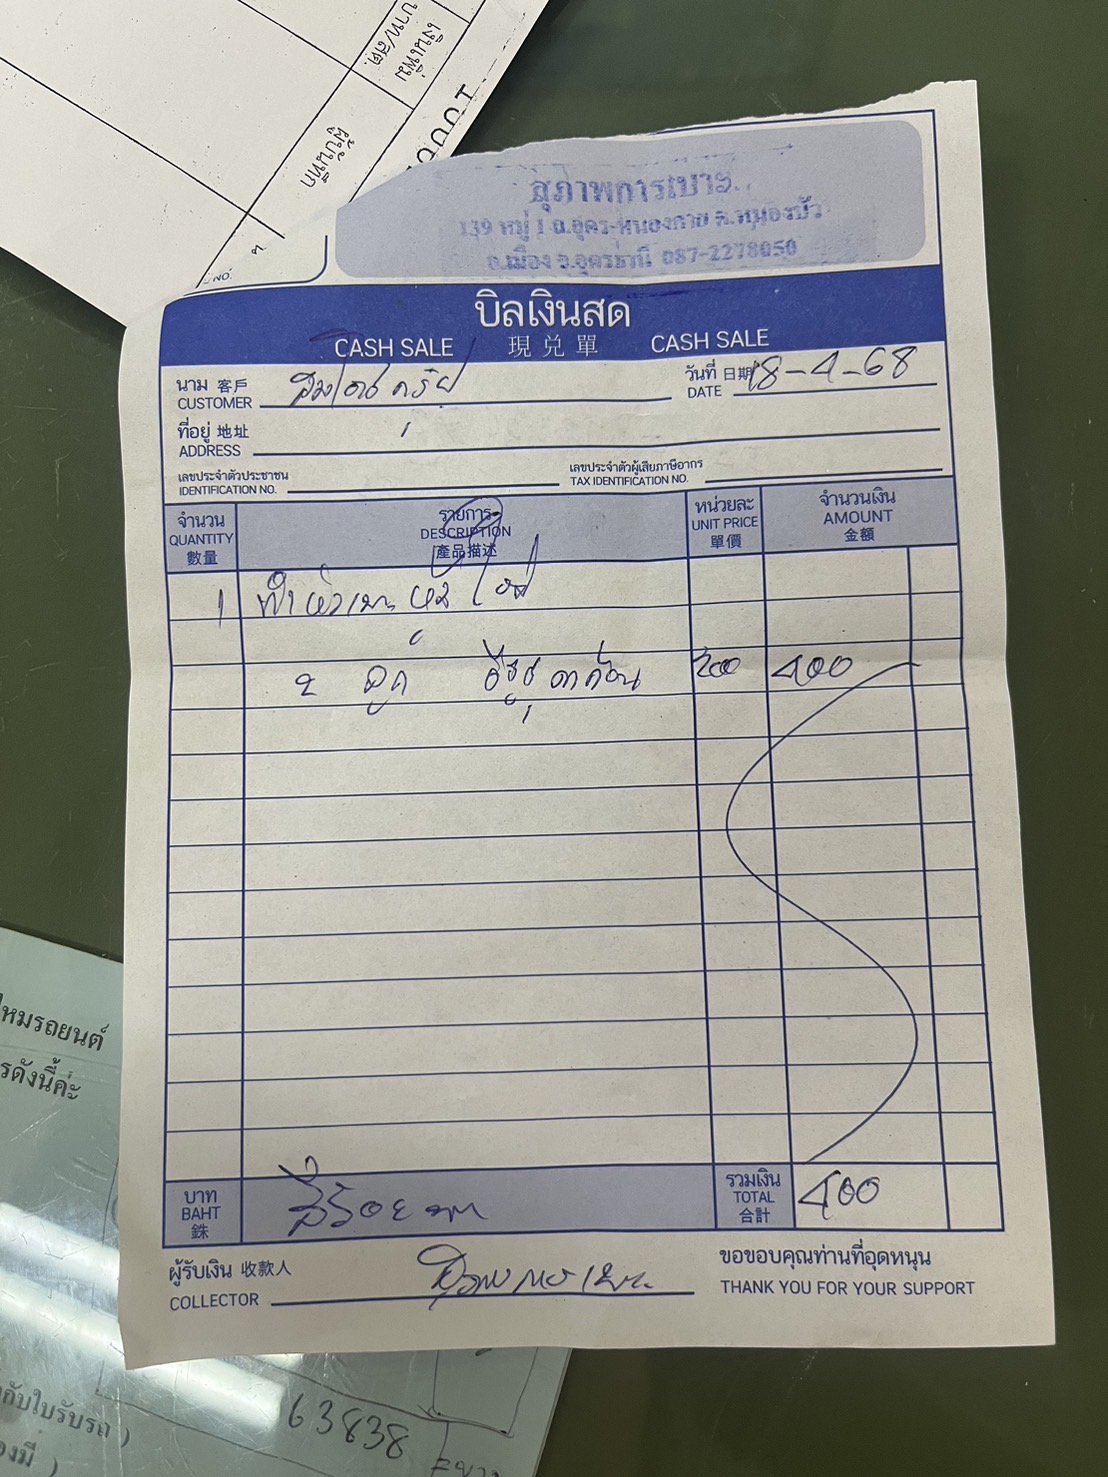 เงินเพิ่ม
บาท/สต.
ผู้บันทึก
สุภาพการเบาะ
139 หมู่ 1 ถ.อุดร-หนองคาย ต.หมูม่น
อ.เมือง จ.อุดรธานี 087-2278050
บิลเงินสด
CASH SALE 現兌單 CASH SALE
นาม 客戶
CUSTOMER
วันที่ 日期 18-4-68
DATE
ที่อยู่ 地址
ADDRESS
เลขประจำตัวประชาชน
IDENTIFICATION NO.
เลขประจำตัวผู้เสียภาษีอากร
TAX IDENTIFICATION NO.
จำนวน
QUANTITY
數量
รายการ
DESCRIPTION
產品描述
หน่วยละ
UNIT PRICE
單價
จำนวนเงิน
AMOUNT
金額
1 ทำหัวเบาะหุ้มใหม่
2 ลูก อีซูซุดาก้อน 200 400
บาท
BAHT
銖
สี่ร้อยบาท
รวมเงิน
TOTAL
合計
400
ผู้รับเงิน 收款人
COLLECTOR
สุภาพการเบาะ
ขอขอบคุณท่านที่อุดหนุน
THANK YOU FOR YOUR SUPPORT
ไหมรถยนต์
รดังนี้ค่ะ
กับใบรับรถ )
องมี )
63838